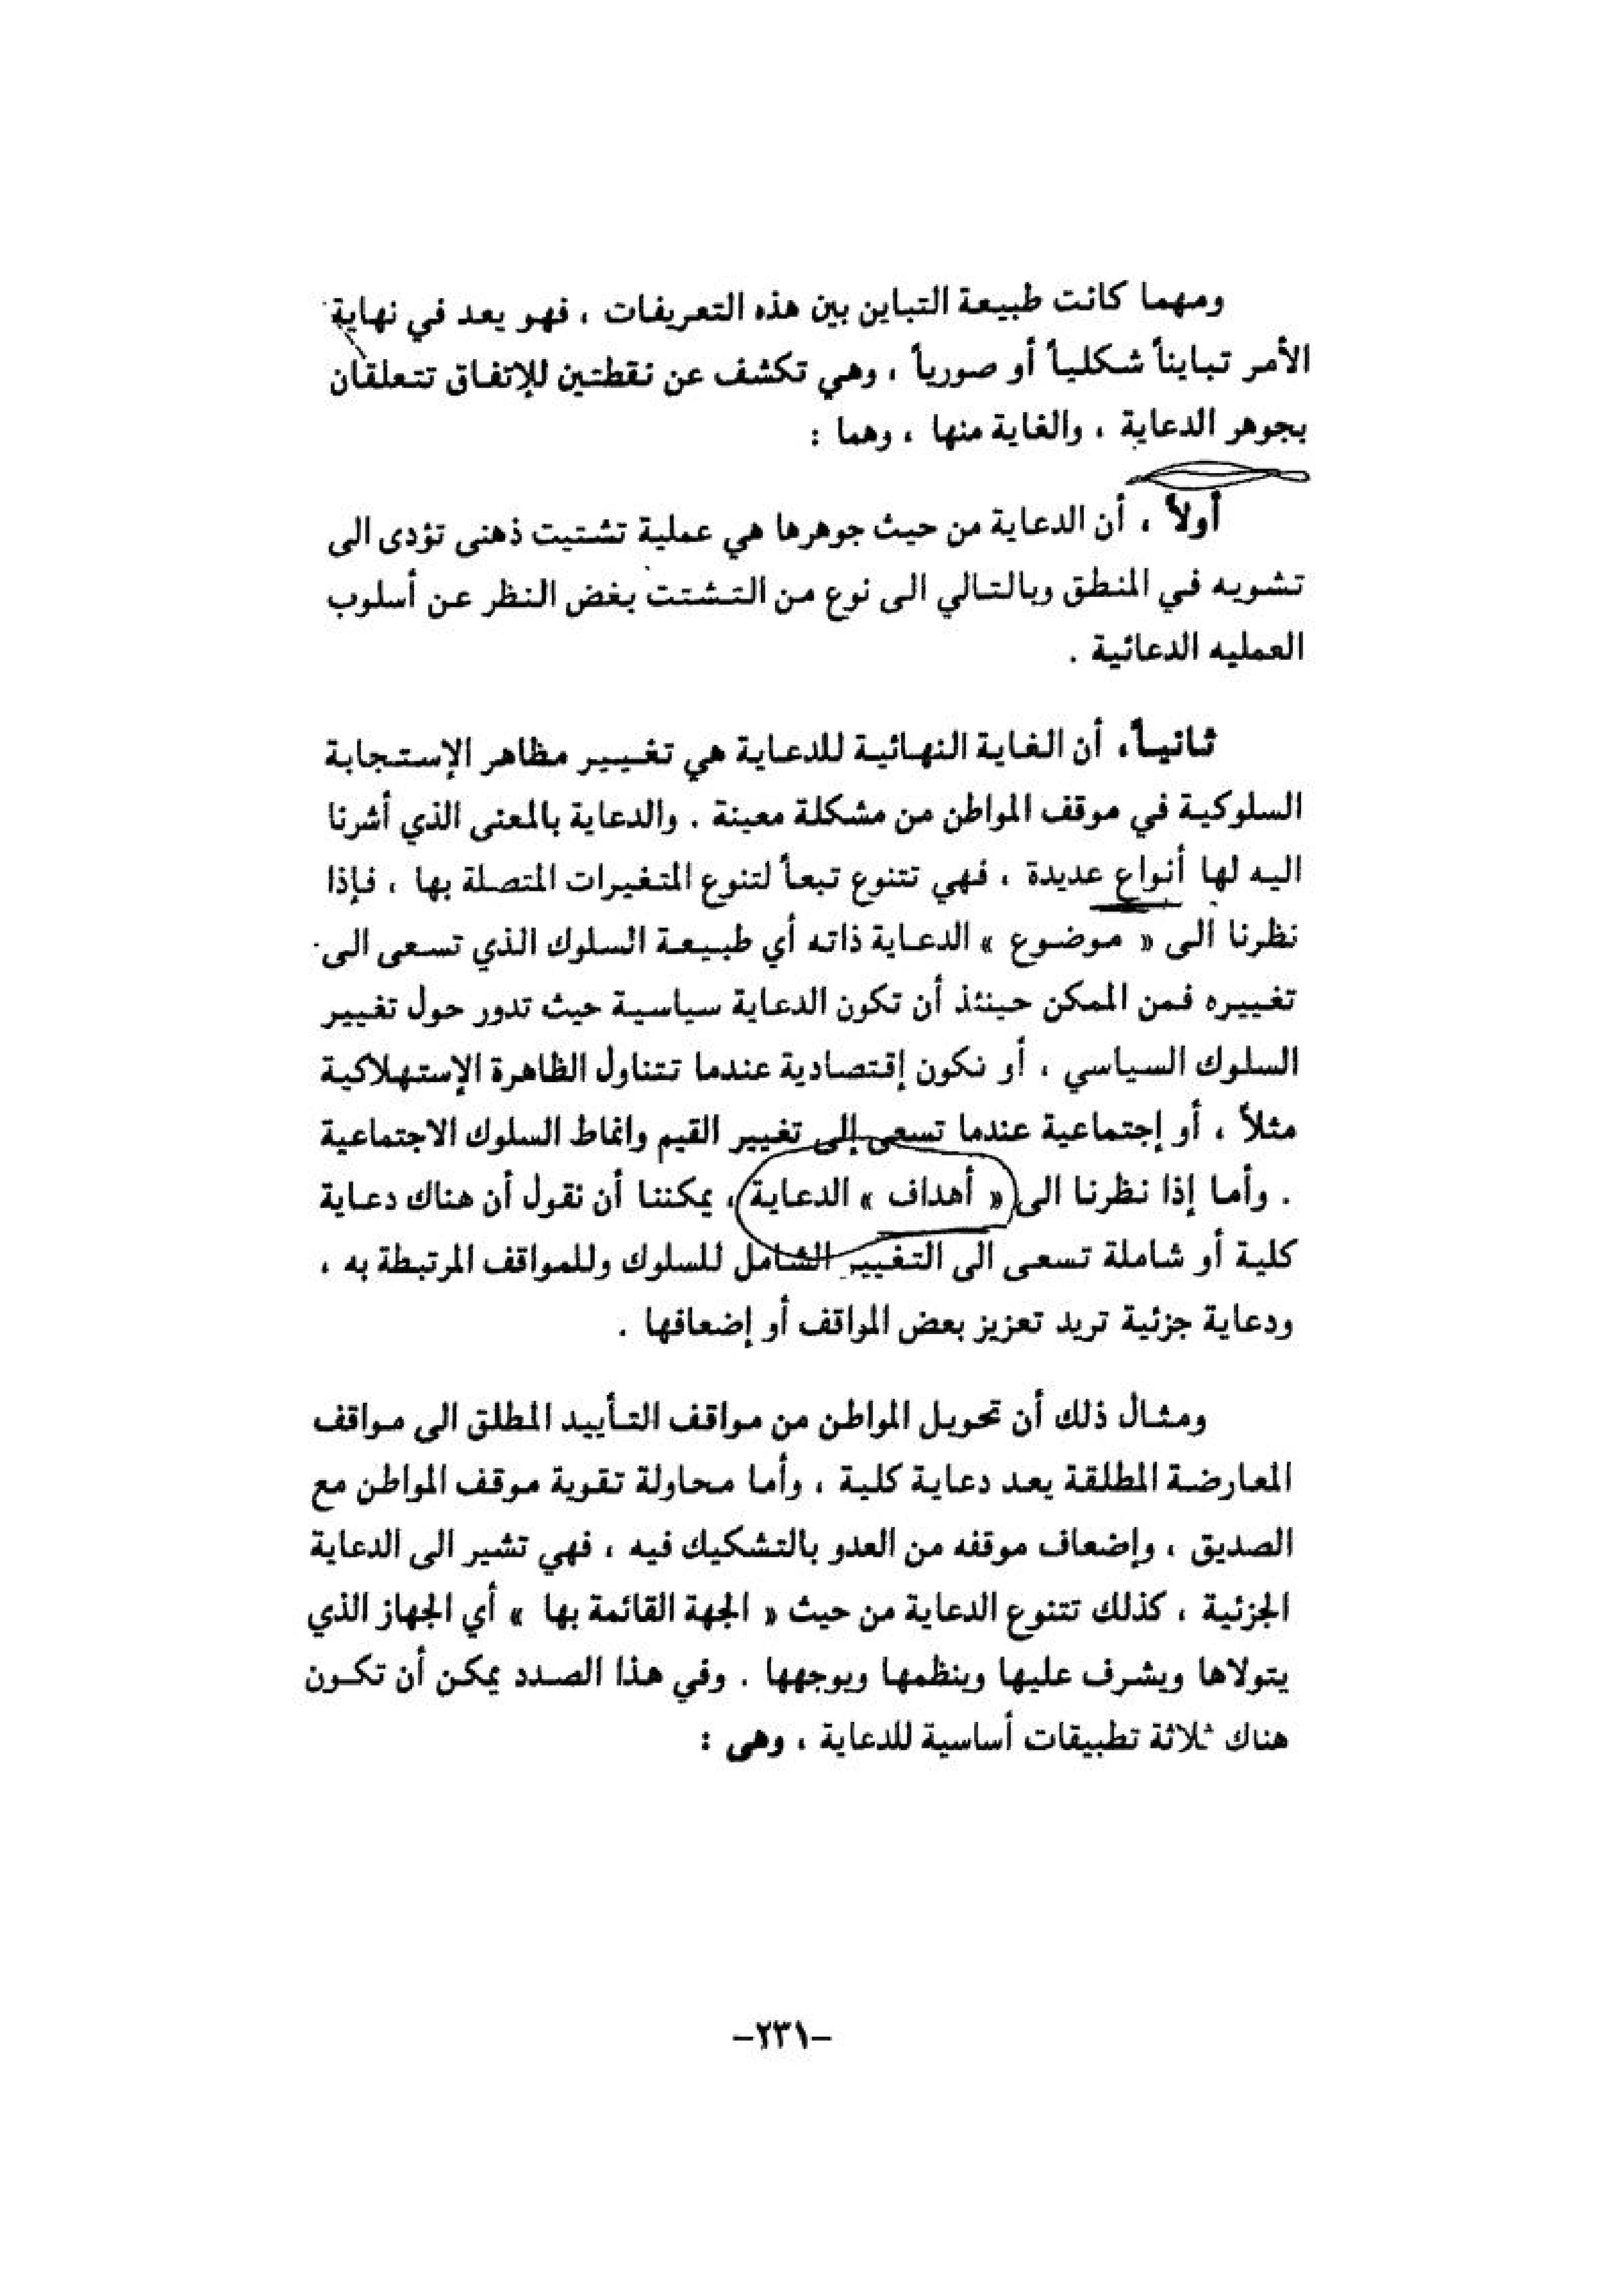 ومهما كانت طبيعة التباين بين هذه التعريفات ، فهو يعد في نهاية
الأمر تبايناً شكلياً أو صورياً ، وهي تكشف عن نقطتين للإتفاق تتعلقان
بجوهر الدعاية ، والغاية منها ، وهما :
أولاً ، أن الدعاية من حيث جوهرها هي عملية تشتيت ذهنى تؤدى الى
تشويه في المنطق وبالتالي الى نوع من التشتت بغض النظر عن أسلوب
العمليه الدعائية .
ثانياً، أن الغاية النهائية للدعاية هي تغيير مظاهر الإستجابة
السلوكية في موقف المواطن من مشكلة معينة . والدعاية بالمعنى الذي أشرنا
اليه لها أنواع عديدة ، فهي تتنوع تبعاً لتنوع المتغيرات المتصلة بها ، فإذا
نظرنا الى « موضوع » الدعاية ذاته أي طبيعة السلوك الذي تسعى الى
تغييره فمن الممكن حينئذ أن تكون الدعاية سياسية حيث تدور حول تغيير
السلوك السياسي ، أو نكون إقتصادية عندما تتناول الظاهرة الإستهلاكية
مثلاً ، أو إجتماعية عندما تسعى إلى تغيير القيم وانماط السلوك الاجتماعية
. وأما إذا نظرنا الى « أهداف » الدعاية ، يمكننا أن نقول أن هناك دعاية
كلية أو شاملة تسعى الى التغيير الشامل للسلوك وللمواقف المرتبطة به ،
ودعاية جزئية تريد تعزيز بعض المواقف أو إضعافها .
ومثال ذلك أن تحويل المواطن من مواقف التأييد المطلق الى مواقف
المعارضة المطلقة يعد دعاية كلية ، وأما محاولة تقوية موقف المواطن مع
الصديق ، وإضعاف موقفه من العدو بالتشكيك فيه ، فهي تشير الى الدعاية
الجزئية ، كذلك تتنوع الدعاية من حيث « الجهة القائمة بها » أي الجهاز الذي
يتولاها ويشرف عليها وينظمها ويوجهها . وفي هذا الصدد يمكن أن تكون
هناك ثلاثة تطبيقات أساسية للدعاية ، وهى :
-٢٣١-